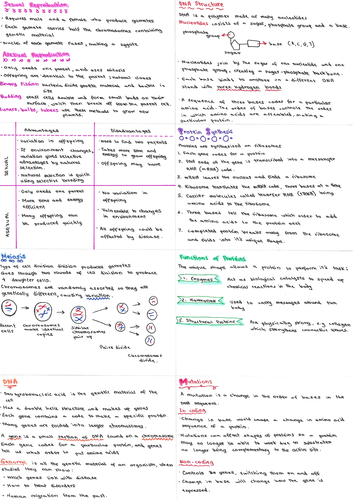 Sexual Reproduction
• Requires male and a female who produce gametes
• Each gamete carries half the chromosomes containing
genetic material
• nuclei of each gamete fuses, making a zygote
Asexual Reproduction
• Only needs one parent, and uses mitosis
• Offspring are identical to the parent (natural clones)
small buds on their
surface, which then break off from the parent cell
methods to grow new
plants.
Advantages
Disadvantages
SEXUAL
• Variation in offspring
• If environment changes,
variation gives selective
advantages by natural
selection
• Natural selection is quick
using selective breeding
• Need to find two parents
• Takes more time and
energy to grow offspring
ASEXUAL
• Only needs one parent
• More time and energy
efficient
• Many offspring can
be produced quickly
• No variation in
offspring
• Vulnerable to changes
in environment
• All offspring could be
affected by disease.
Meiosis
Type of cell division produces gametes
Goes through two rounds of cell division to produce
4 daughter cells.
Chromosomes are randomly assorted so they all
genetically different, causing variation
Parent
cells
Chromosomes
make identical
copies
Similar
chromosomes
pair up
Pairs divide
Chromosomes
divide.
DNA
• Deoxyribonucleic acid is the genetic material of the
cell
• Has a double helix structure
• Each gene contains a code to make a specific protein
• Many genes are folded into larger chromosomes
A gene is a small section of DNA found on a chromosome
Each gene codes for a particular protein, and genes
tell us what order to put amino acids
Genome is all the genetic material of an organism, when
studied they can show:
• Which genes link with disease
• How to treat disorders
• Human migration from the past.
DNA Structure
DNA is a polymer made of many nucleotides
Nucleotides consists of a sugar, phosphate group and a base.
phosphate
group
sugar
base (A, C, G, T)
Nucleotides join by the sugar of one nucleotide and one
phosphate group, creating a sugar phosphate backbone.
Each base bonds to another in a different DNA
strand with
hydrogen bonds
A sequence of three bases codes for a particular
amino acid. The order of bases controls the order
in which amino acids are assembled, making a
particular protein.
Protein Synthesis
Proteins are synthesised on ribosomes
1. Each gene codes for a protein
2. DNA code of the gene is transcribed into a messenger
RNA (mRNA) code
3. mRNA leaves the nucleus and finds a ribosome
4. Ribosome translates the mRNA code, three bases at a time
5. Carrier molecules called transfer RNA (tRNA) bring
amino acids to the ribosome
6. Three bases tell the ribosome which order to add
the amino acids to the protein end.
7. Completed protein breaks away from the ribosome
and folds into it's unique shape.
Functions of Proteins
The unique shape allows a protein to perform it's task:
1. Enzymes
Act as biological catalysts to speed up
chemical reactions in the body
2. Hormones
Used to carry messages around the
body
3. Structural Proteins
Are physically strong, e.g. collagen
which strengthens connective tissues.
Mutations
A mutation is a change in the order of bases in the
DNA sequence.
In coding
• Change in base could cause a change in amino acid
sequence of a protein.
Mutations can affect shapes of proteins so a protein
may no longer be able to work due to substrates
no longer being complementary to the active site.
Non-coding
• Controls the genes, switching them on and off
• Change in base will change how the gene is
expressed.